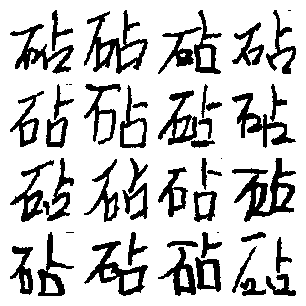 砧砧砧砧
砧砧砧砧
砧砧砧砧
砧砧砧砧